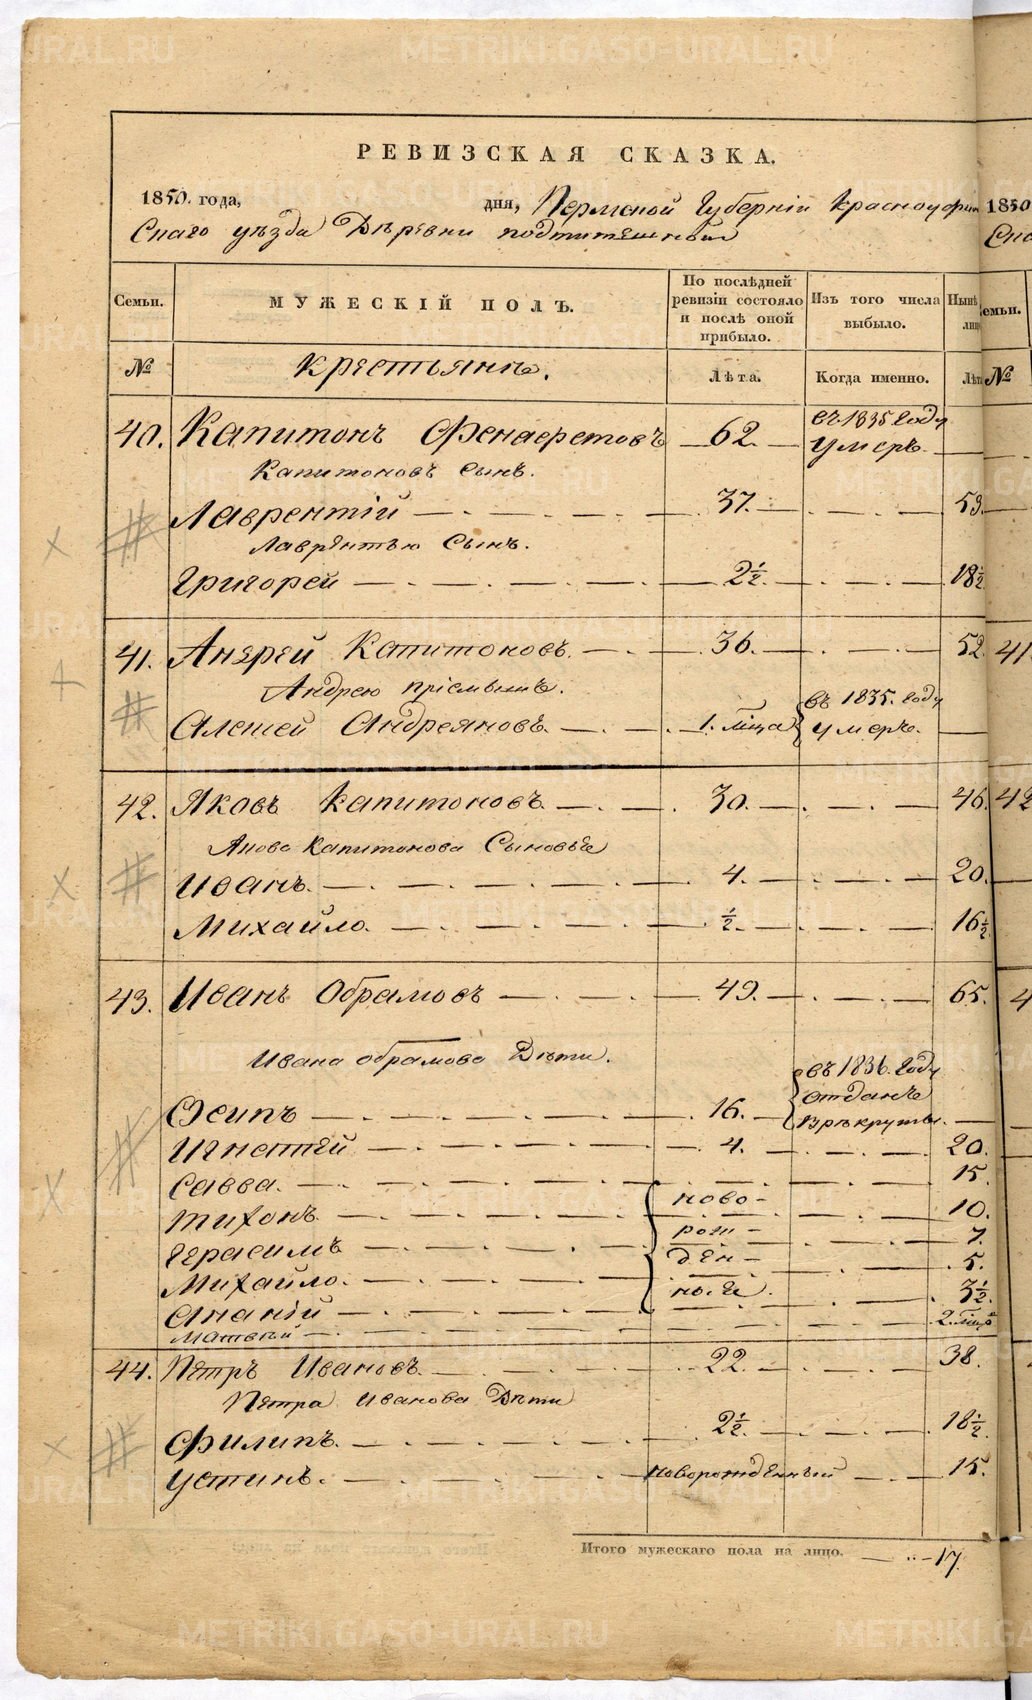 РЕВИЗСКАЯ СКАЗКА.
1850. года, дня, Пермской Губерніи Красноуфим
Скаго уѣзда Деревни
Семьи. МУЖЕСКІЙ ПОЛЪ. По послѣдней ревизіи состояло и послѣ оной прибыло. Изъ того числа выбыло. Нынѣ лиц
№ Крестьяне. Лѣта. Когда именно. Лѣт
40. Капитонъ Фенаеретовъ 62. въ 1835 Году умеръ.
Капитоновъ Сынъ.
Лаврентій 37. 53.
Лаврентью Сынъ.
Григорей 2½. 18½
41. Андрей Капитоновъ. 36. 52.
Андрею пріемышъ.
Алексей Андреяновъ. 1. мѣца въ 1835. году умеръ.
42. Яковъ Капитоновъ 30. 46.
Якова Капитонова Сыновье
Иванъ. 4. 20.
Михайло. ½. 16½
43. Иванъ Обрамовъ 49. 65.
Ивана обрамова Дѣти.
Осипъ 16. въ 1836. Году отданъ врѣкруты.
Игнатей 4. 20.
Савва. 15.
Тихонъ ново- 10.
Герасимъ рож- 7.
Михайло. ден- 5.
Ананій ные. 3½.
Матвѣй 2. мѣц
44. Петръ Ивановъ. 22. 38.
Петра Иванова Дѣти
Филипъ. 2½. 18½.
Устинъ. новорожденный 15.
Итого мужескаго пола на лицо. 17.
1850
Ска
емьи.
№
41
42
4
METRIKI.GASO-URAL.RU